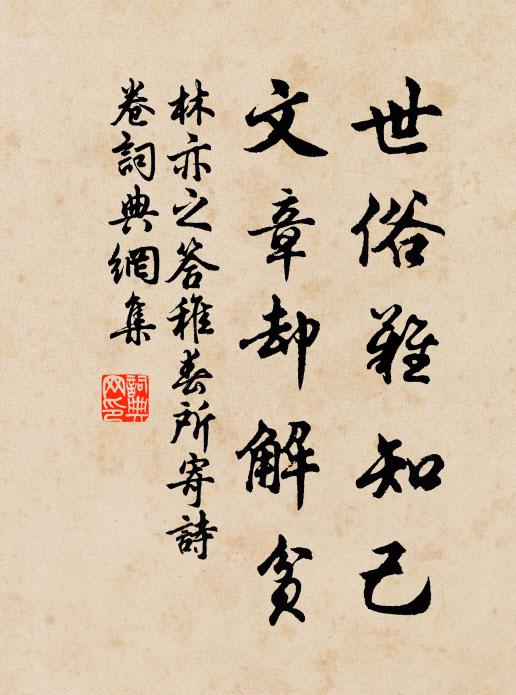 世俗難知己
文章却解貧
林亦之答稚春所寄詩
卷詞典網集
詞典网印